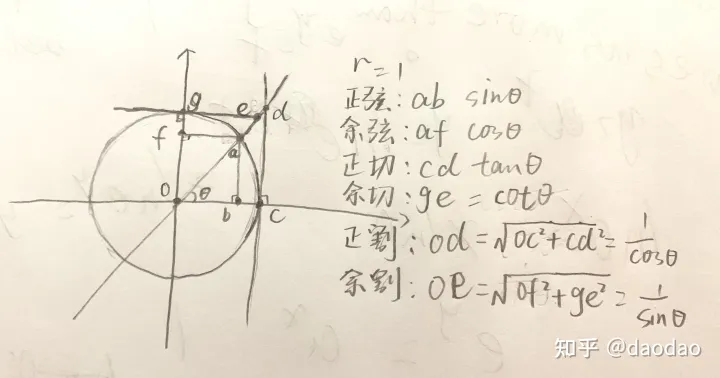 g
e
d
f
a
O
θ
b
C
r=1
正弦: ab sinθ
余弦: af cosθ
正切: cd tanθ
余切: ge = cotθ
正割: od = √oc²+cd² = 1/cosθ
余割: oe = √of²+ge² = 1/sinθ
知乎 @daodao